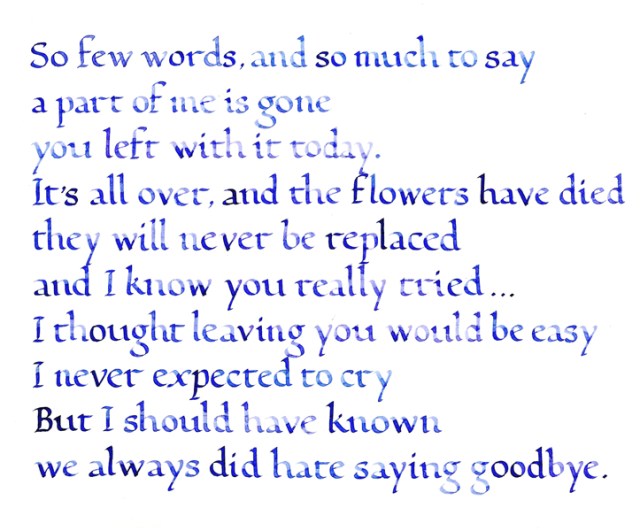 So few words, and so much to say
a part of me is gone
you left with it today.
It's all over, and the flowers have died
they will never be replaced
and I know you really tried...
I thought leaving you would be easy
I never expected to cry
But I should have known
we always did hate saying goodbye.